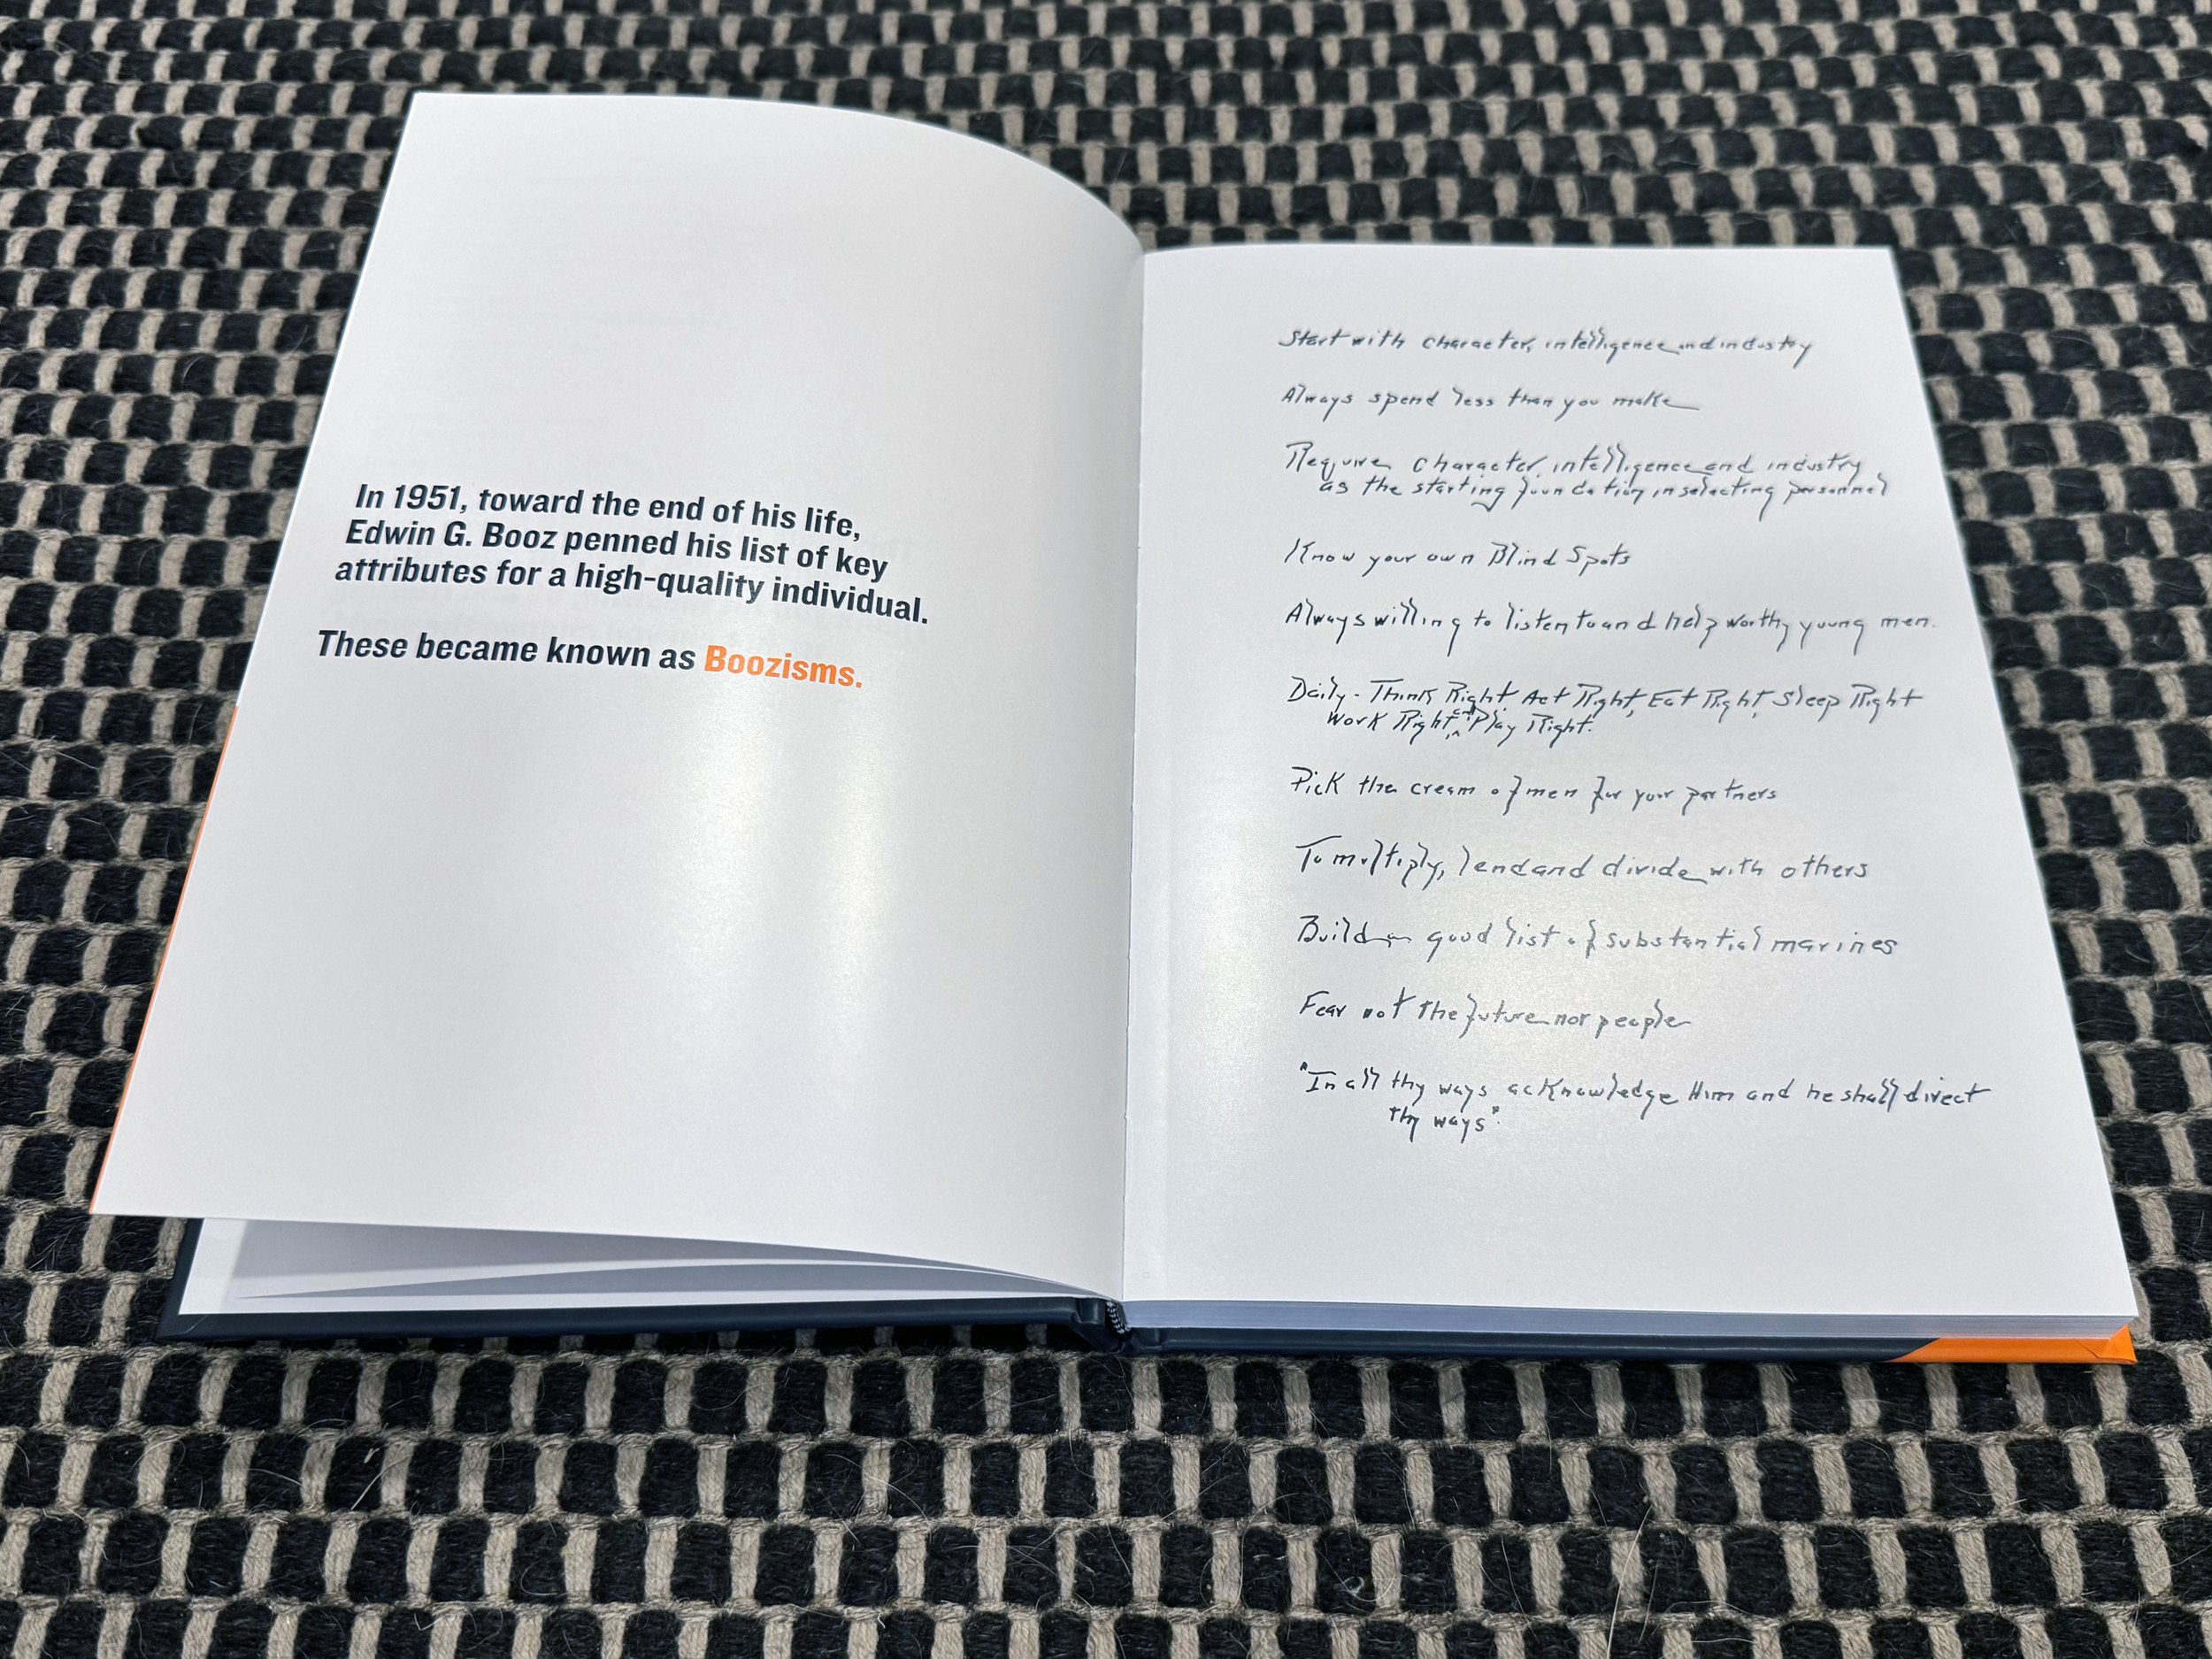 In 1951, toward the end of his life,
Edwin G. Booz penned his list of key
attributes for a high-quality individual.
These became known as Boozisms.
Start with character, intelligence and industry
Always spend less than you make
Require character, intelligence and industry
as the starting foundation in selecting personnel
Know your own Blind Spots
Always willing to listen to and help worthy young men.
Daily - Think Right, Act Right, Eat Right, Sleep Right
Work Right, and Play Right.
Pick the cream of men for your partners
To multiply, lend and divide with others
Build a good list of substantial marines
Fear not the future nor people
"In all thy ways acknowledge Him and he shall direct
thy ways".